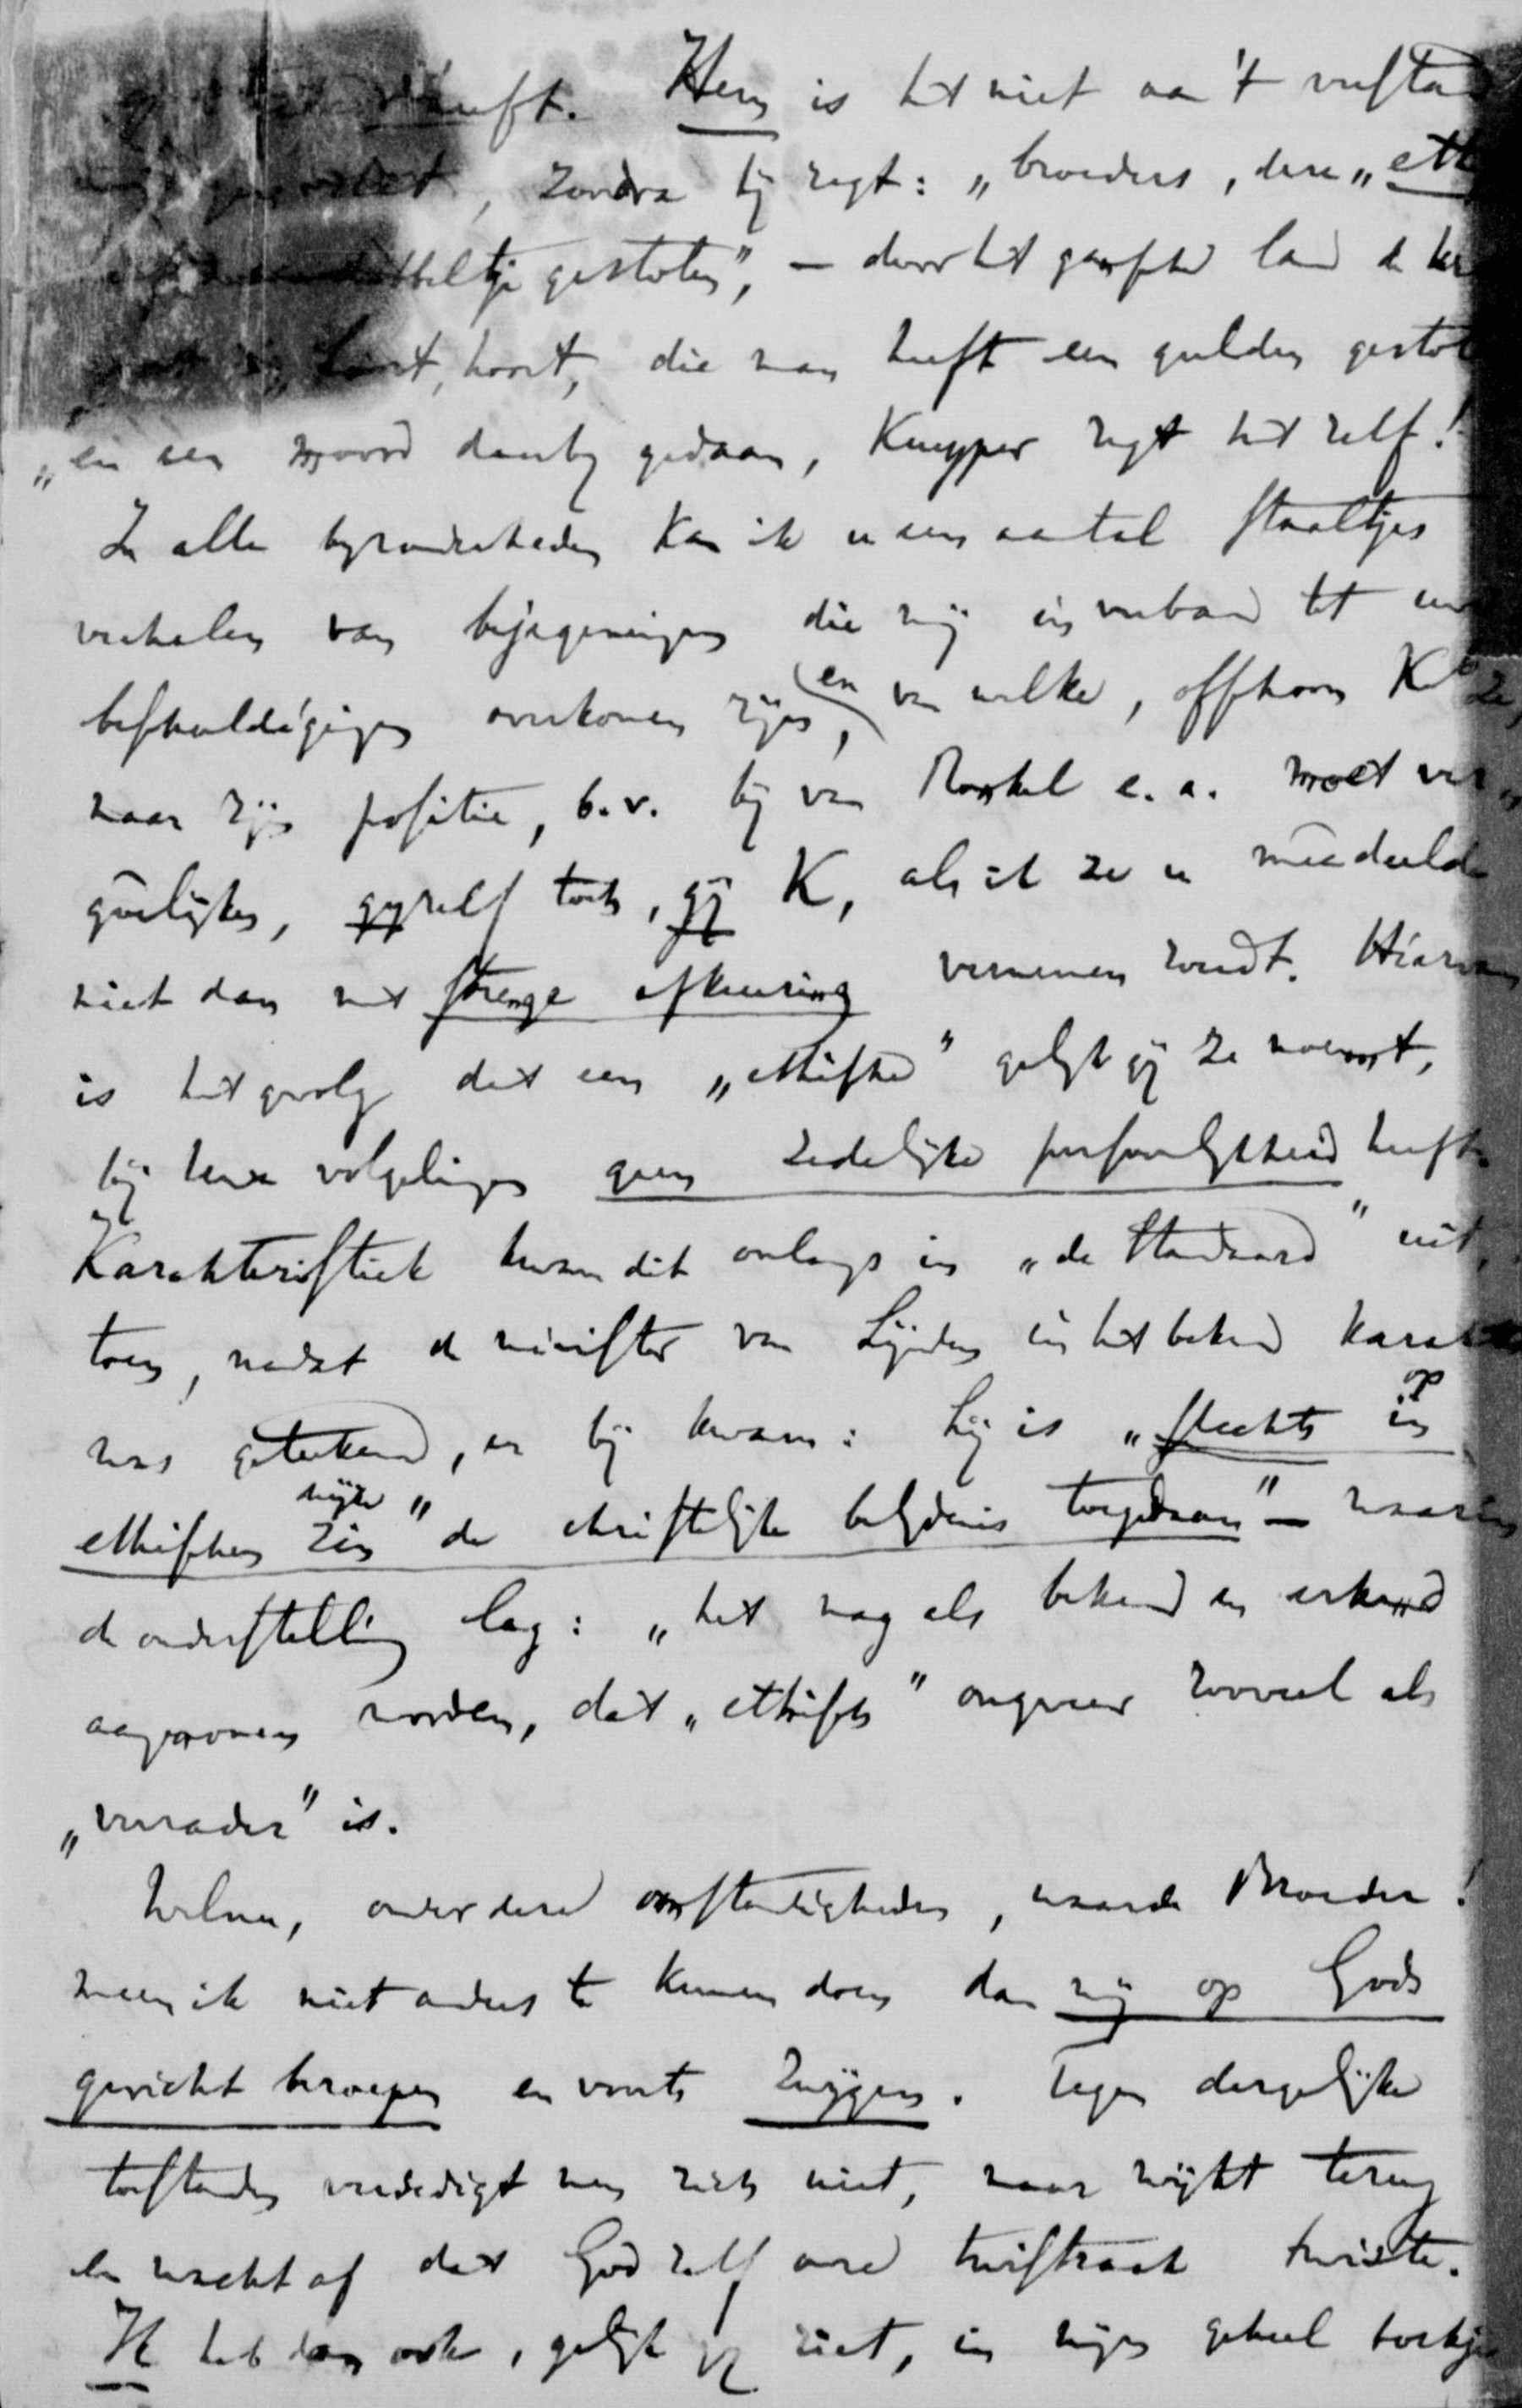 heeft. Hen is het niet aan 't verstand
, zoodra hij zegt: „broeders, deze „eth
dubbeltje gestolen", — door het gansche land de
hoort, hoort, die man heeft een gulden gestol
„en een moord daarbij gedaan, Kuyper zegt het zelf!
In alle bijzonderheden kan ik u een aantal staaltjes
verhalen van bejegeningen die mij in verband tot uw
beschuldigingen overkomen zijn, (en van welke, ofschoon K ze,
naar zijn positie, b.v. bij van Ronkel e.a. moet ver
goelijken, gijzelf toch, gij K, als ik ze u mededeelde
niet dan met strenge afkeuring vernemen zoudt. Hiervan
is het gevolg dat een „ethische" gelijk gij ze noemt,
bij uwe volgelingen geen zedelijke persoonlijkheid heeft.
Karakteristiek kwam dit onlangs in „de Standaard" uit,
toen, nadat de minister van Lijnden in het bekend karakter
was geteekend, er bij kwam: hij is „slechts op in
ethischen zin wijze" de christelijke belijdenis toegedaan" — waarin
de onderstelling lag: „het mag als bekend en erkend
aangenomen worden, dat „ethisch" ongeveer zooveel als
„verrader" is.
Welnu, onder deze omstandigheden, waarde Broeder!
meen ik niet anders te kunnen doen dan mij op Gods
gericht beroepen en voorts zwijgen. Tegen dergelijke
toestanden verdedigt men zich niet, maar wijkt terug
en wacht af dat God zelf onze twistzaak twiste.
Ik heb dan ook, gelijk gij ziet, in mijn geheel boekje